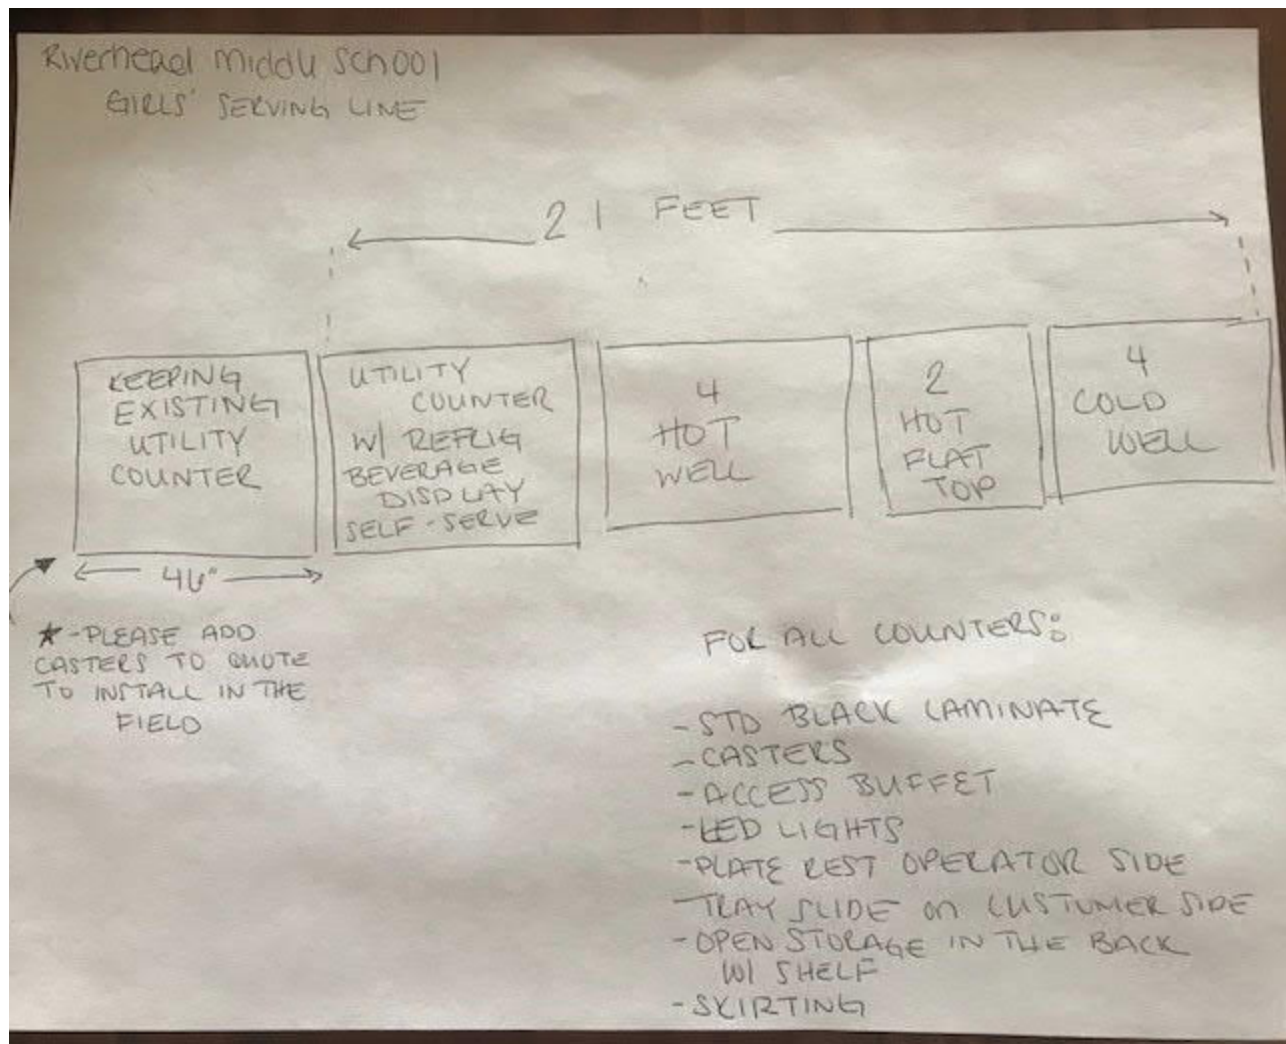 Riverhead Middle School
GIRLS' SERVING LINE
21 FEET
KEEPING
EXISTING
UTILITY
COUNTER
UTILITY
COUNTER
W/ REFRIG
BEVERAGE
DISPLAY
SELF-SERVE
4
HOT
WELL
2
HOT
FLAT
TOP
4
COLD
WELL
46"
★-PLEASE ADD
CASTERS TO QUOTE
TO INSTALL IN THE
FIELD
FOR ALL COUNTERS:
-STD BLACK LAMINATE
-CASTERS
-ACCESS BUFFET
-LED LIGHTS
-PLATE REST OPERATOR SIDE
-TRAY SLIDE on CUSTUMER SIDE
-OPEN STORAGE IN THE BACK
W/ SHELF
-SKIRTING